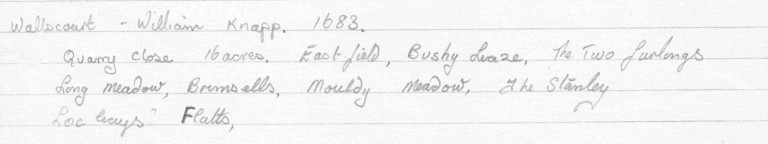 Wallscourt - William Knapp. 1683.
Quarry Close 16 acres. East field, Bushy Leaze, The Two furlongs
Long Meadow, Brimsells, Mouldy Meadow, The Stanley
Flatts,